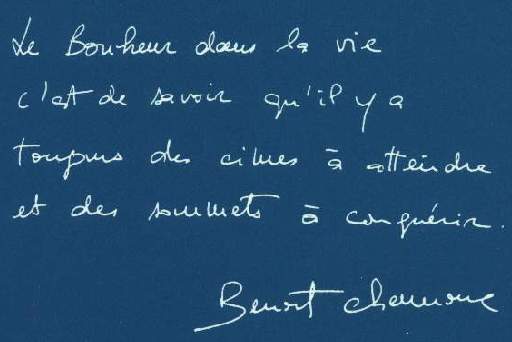 Le Bonheur dans la vie
c'est de savoir qu'il y a
toujours des cimes à atteindre
et des sommets à conquérir.
Benoît Chamoux